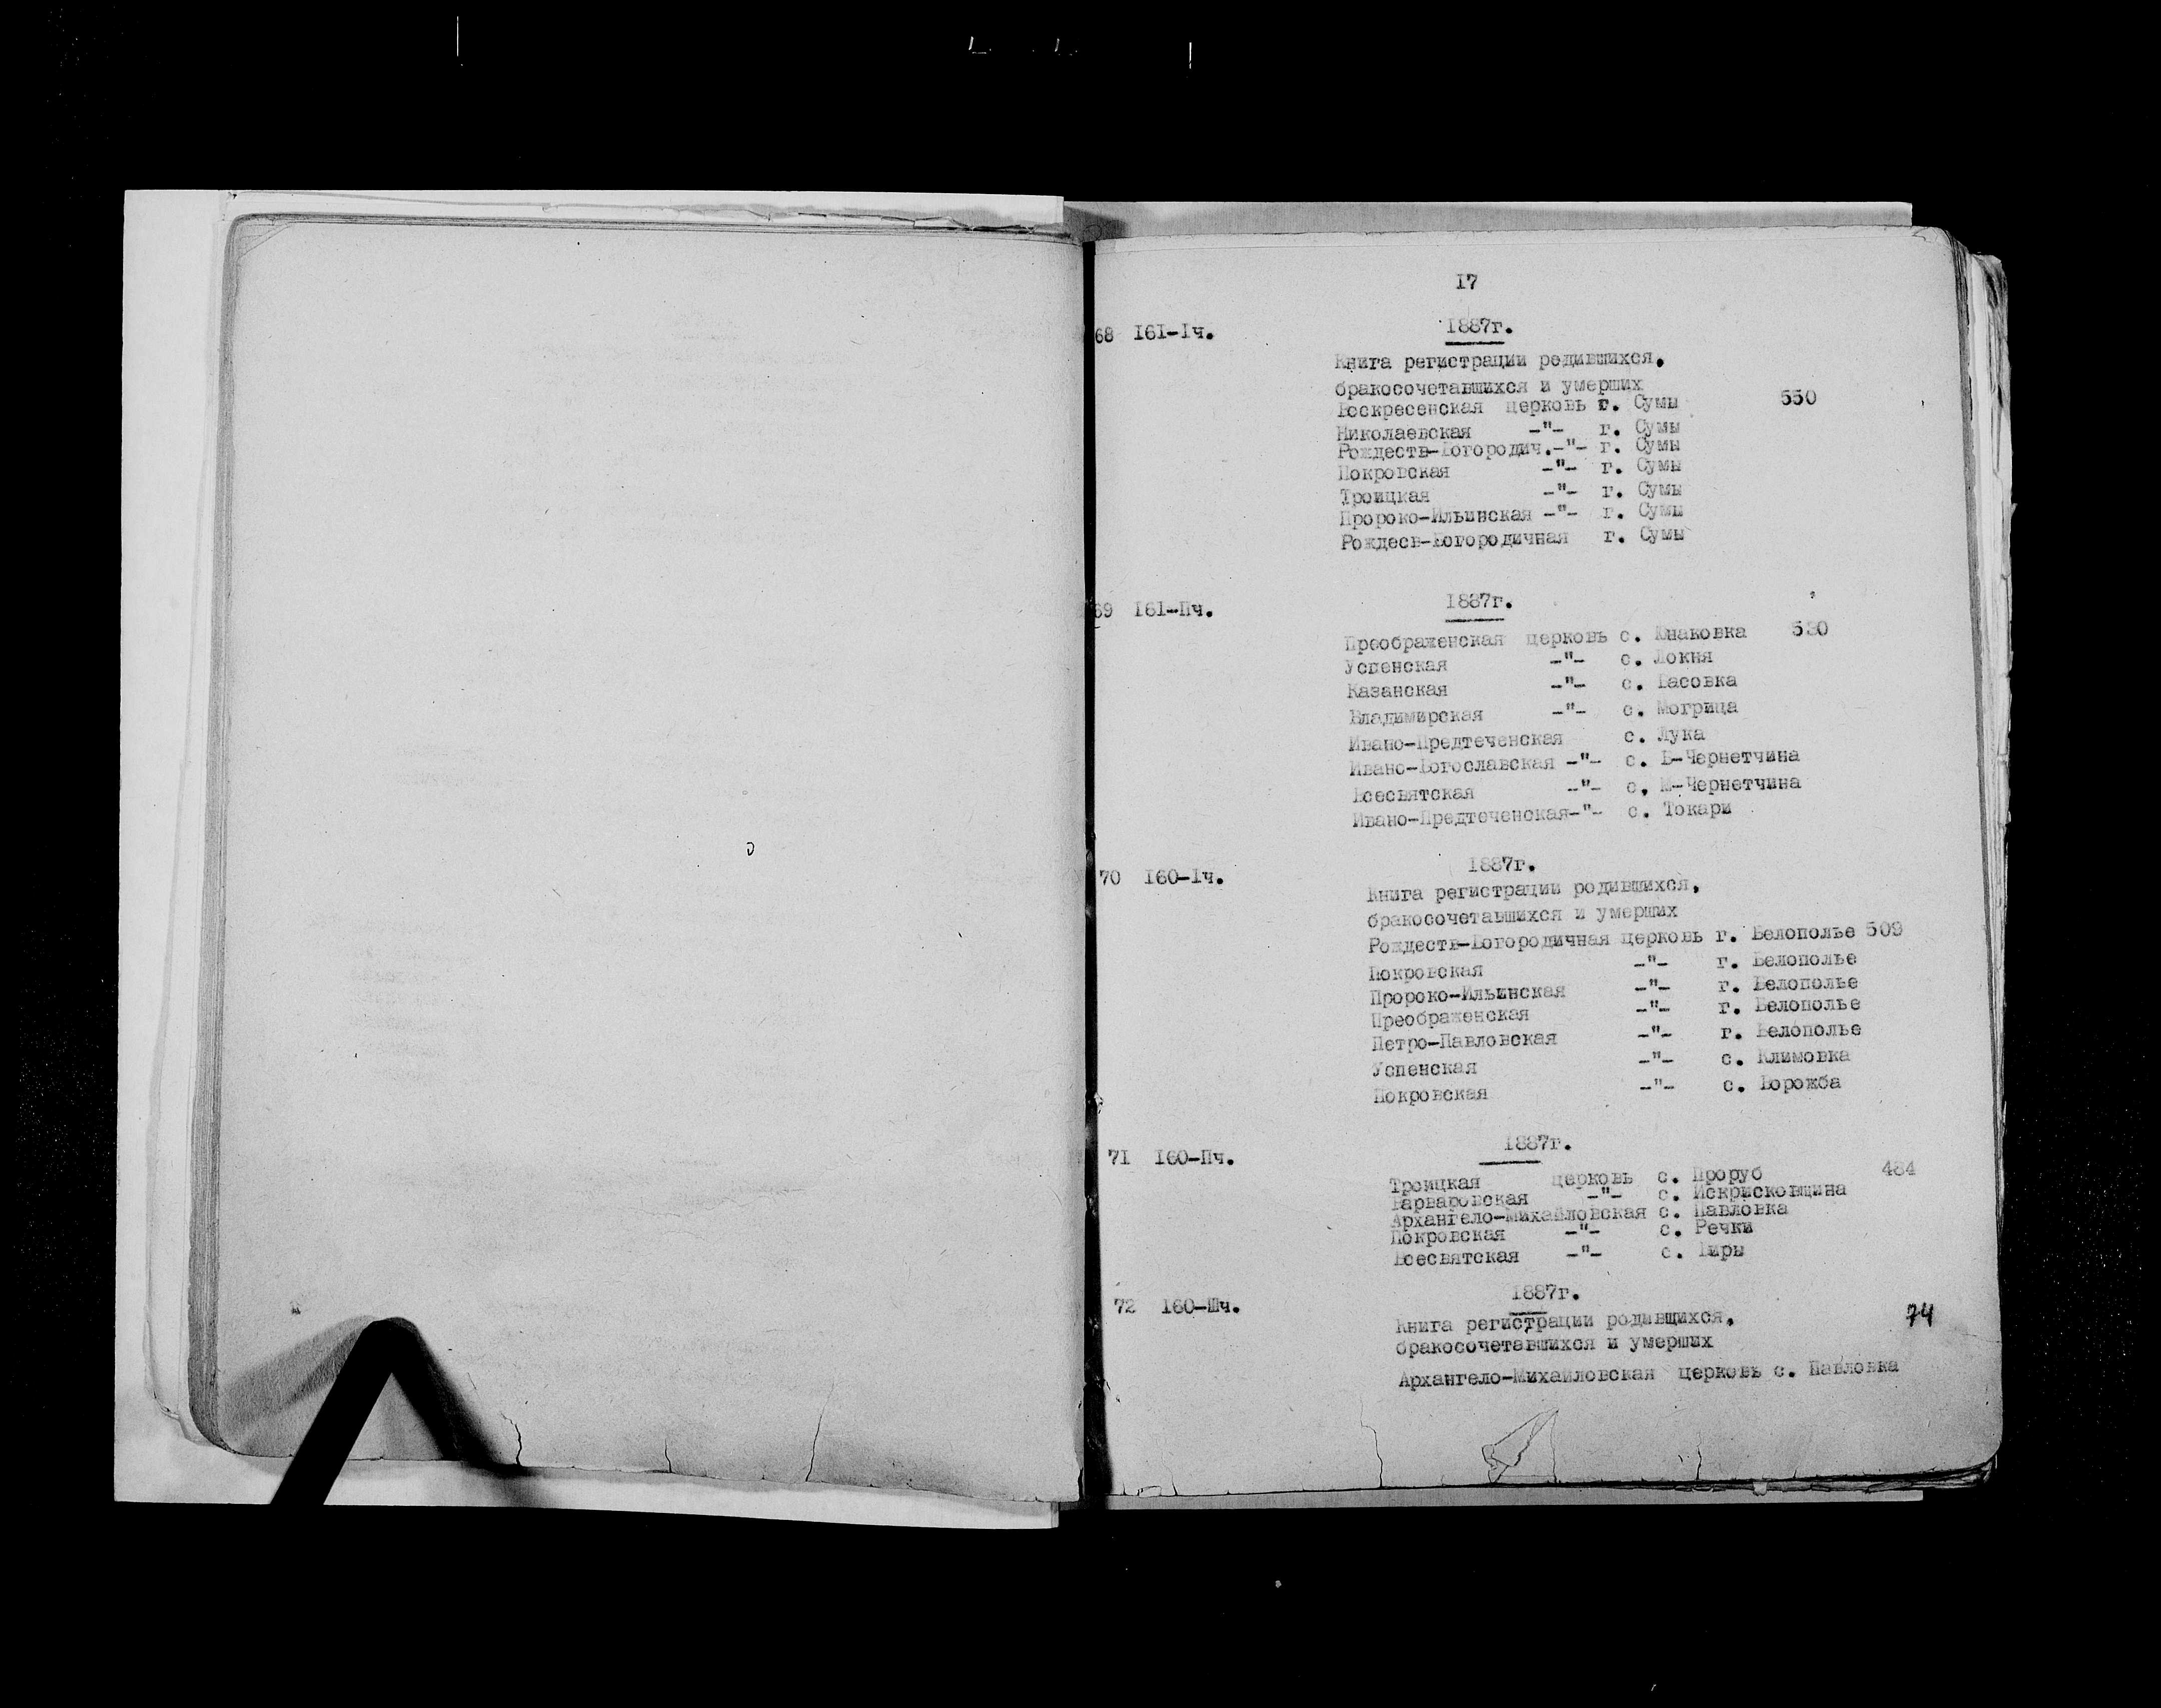 17
68 161-Iч. 1887г.
Книга регистрации родившихся,
бракосочетавшихся и умерших
Воскресенская церковь г. Сумы 550
Николаевская -"- г. Сумы
Рождеств-Богородич.-"- г. Сумы
Покровская -"- г. Сумы
Троицкая -"- г. Сумы
Пророко-Ильинская -"- г. Сумы
Рождесв-Богородичная г. Сумы
69 161-Пч. 1887г.
Преображенская церковь с. Юнаковка 530
Успенская -"- с. Локня
Казанская -"- с. Басовка
Владимирская -"- с. Могрица
Ивано-Предтеченская с. Лука
Ивано-Богославская -"- с. В-Чернетчина
Всесвятская -"- с, М-Чернетчина
Ивано-Предтеченская-"- с. Токари
70 160-Iч. 1887г.
Книга регистрации родившихся,
бракосочетавшихся и умерших
Рождеств-Богородичная церковь г. Белополье 509
Покровская -"- г. Белополье
Пророко-Ильинская -"- г. Белополье
Преображенская -"- г. Белополье
Петро-Павловская -"- г. Белополье
Успенская -"- с. Климовка
Покровская -"- с. Ворожба
71 160-Пч. 1887г.
Троицкая церковь с. Проруб 484
Варваровская -"- с. Искрисковщина
Архангело-Михайловская с. Павловка
Покровская -"- с. Речки
Всесвятская -"- с. Виры
72 160-Шч. 1887г.
Книга регистрации родившихся, 74
бракосочетавшихся и умерших
Архангело-Михайловская церковь с. Павловка